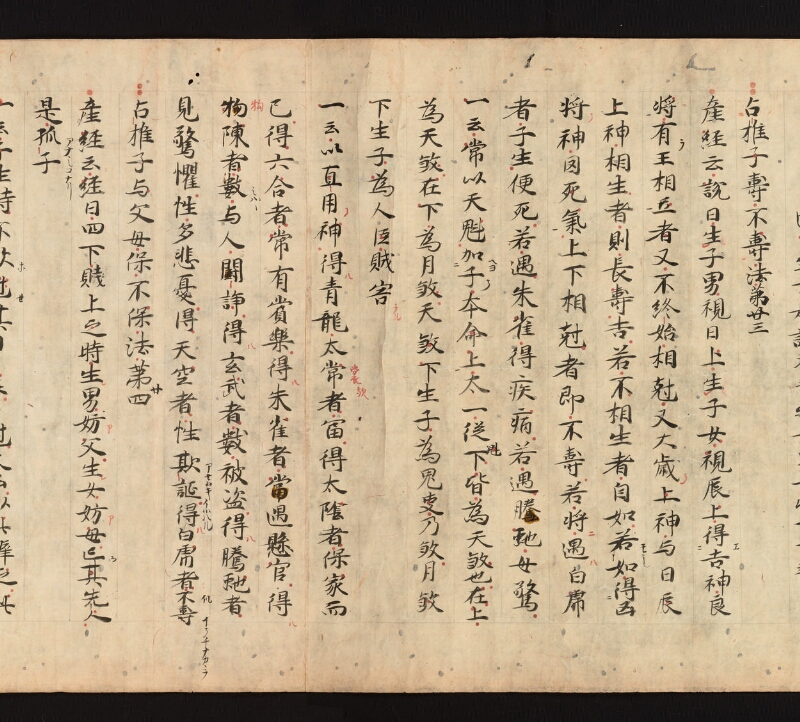 占推子壽不壽法第廿三
産經云說曰生子男視日上生子女視辰上得吉神良
將有王相立者又不終始相尅又大歲上神与日辰
上神相生者則長壽吉若不相生者自如若如得凶
將神囚死氣上下相尅者即不壽若將遇白席
者子生便死若遇朱雀得疾病若遇騰虵女驚
一云常以天魁加子本命上太一從魁下皆為天煞也在上
為天煞在下為月煞天煞下生子為鬼吏乃煞月煞
下生子為人臣賊害
一云以直用神得青龍太常者富得太陰者保家而
已得六合者常有賞樂得朱雀者當遇懸官得
狗陳者數与人闘諍得玄武者數被盗得騰虵者
見驚懼性多悲憂得天空者性欺誕得白席者不壽
占推子与父母保不保法第廿四
産經云經日四下賤上之時生男妨父生女妨母亡其先人
是孤子